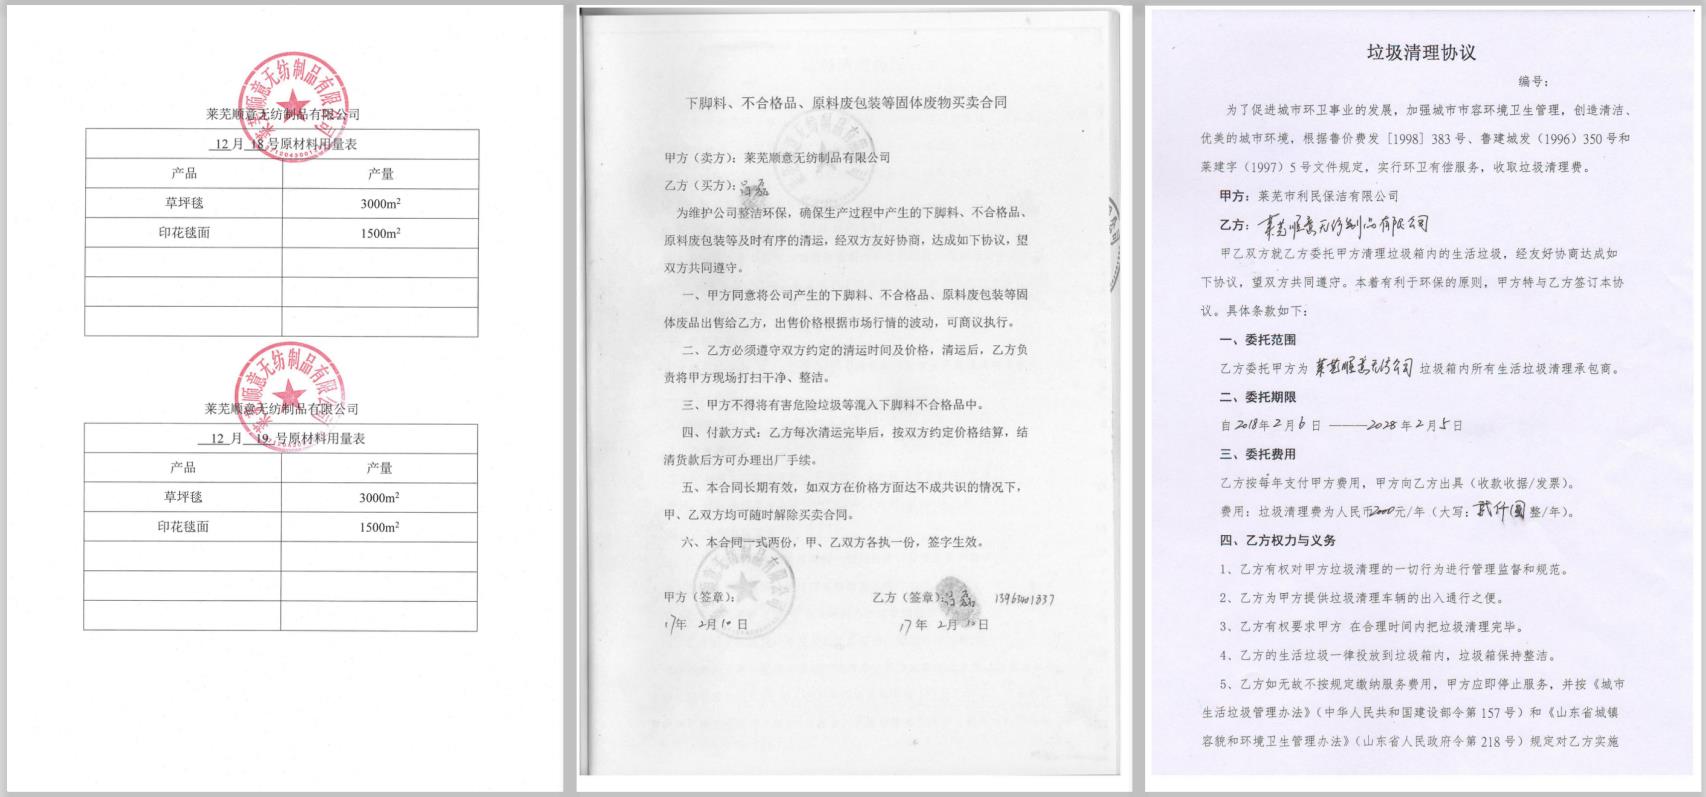 莱芜顺意无纺制品有限公司
莱芜顺意无纺制品有限公司
12 月 18 号原材料用量表
产品 产量
草坪毯 3000m²
印花毯面 1500m²
莱芜顺意无纺制品有限公司
莱芜顺意无纺制品有限公司
12 月 19 号原材料用量表
产品 产量
草坪毯 3000m²
印花毯面 1500m²
下脚料、不合格品、原料废包装等固体废物买卖合同
甲方（卖方）：莱芜顺意无纺制品有限公司
乙方（买方）：
为维护公司整洁环保，确保生产过程中产生的下脚料、不合格品、
原料废包装等及时有序的清运，经双方友好协商，达成如下协议，望
双方共同遵守。
一、甲方同意将公司产生的下脚料、不合格品、原料废包装等固
体废品出售给乙方，出售价格根据市场行情的波动，可商议执行。
二、乙方必须遵守双方约定的清运时间及价格，清运后，乙方负
责将甲方现场打扫干净、整洁。
三、甲方不得将有害危险垃圾等混入下脚料不合格品中。
四、付款方式：乙方每次清运完毕后，按双方约定价格结算，结
清货款后方可办理出厂手续。
五、本合同长期有效，如双方在价格方面达不成共识的情况下，
甲、乙双方均可随时解除买卖合同。
六、本合同一式两份，甲、乙双方各执一份，签字生效。
甲方（签章）： 乙方（签章）：
17年 2月10日 17年 2月10日
垃圾清理协议
编号：
为了促进城市环卫事业的发展，加强城市市容环境卫生管理，创造清洁、
优美的城市环境，根据鲁价费发［1998］383 号、鲁建城发（1996）350 号和
莱建字（1997）5 号文件规定，实行环卫有偿服务，收取垃圾清理费。
甲方：莱芜市利民保洁有限公司
乙方：莱芜顺意无纺制品有限公司
甲乙双方就乙方委托甲方清理垃圾箱内的生活垃圾，经友好协商达成如
下协议，望双方共同遵守。本着有利于环保的原则，甲方特与乙方签订本协
议。具体条款如下：
一、委托范围
乙方委托甲方为 莱芜顺意无纺公司 垃圾箱内所有生活垃圾清理承包商。
二、委托期限
自 2018年 2月 6 日 ———2028 年 2月 5日
三、委托费用
乙方按每年支付甲方费用，甲方向乙方出具（收款收据/发票）。
费用：垃圾清理费为人民币2000元/年（大写：贰仟圆整/年）。
四、乙方权力与义务
1、乙方有权对甲方垃圾清理的一切行为进行管理监督和规范。
2、乙方为甲方提供垃圾清理车辆的出入通行之便。
3、乙方有权要求甲方 在合理时间内把垃圾清理完毕。
4、乙方的生活垃圾一律投放到垃圾箱内，垃圾箱保持整洁。
5、乙方如无故不按规定缴纳服务费用，甲方应即停止服务，并按《城市
生活垃圾管理办法》（中华人民共和国建设部令第 157 号）和《山东省城镇
容貌和环境卫生管理办法》（山东省人民政府令第 218 号）规定对乙方实施